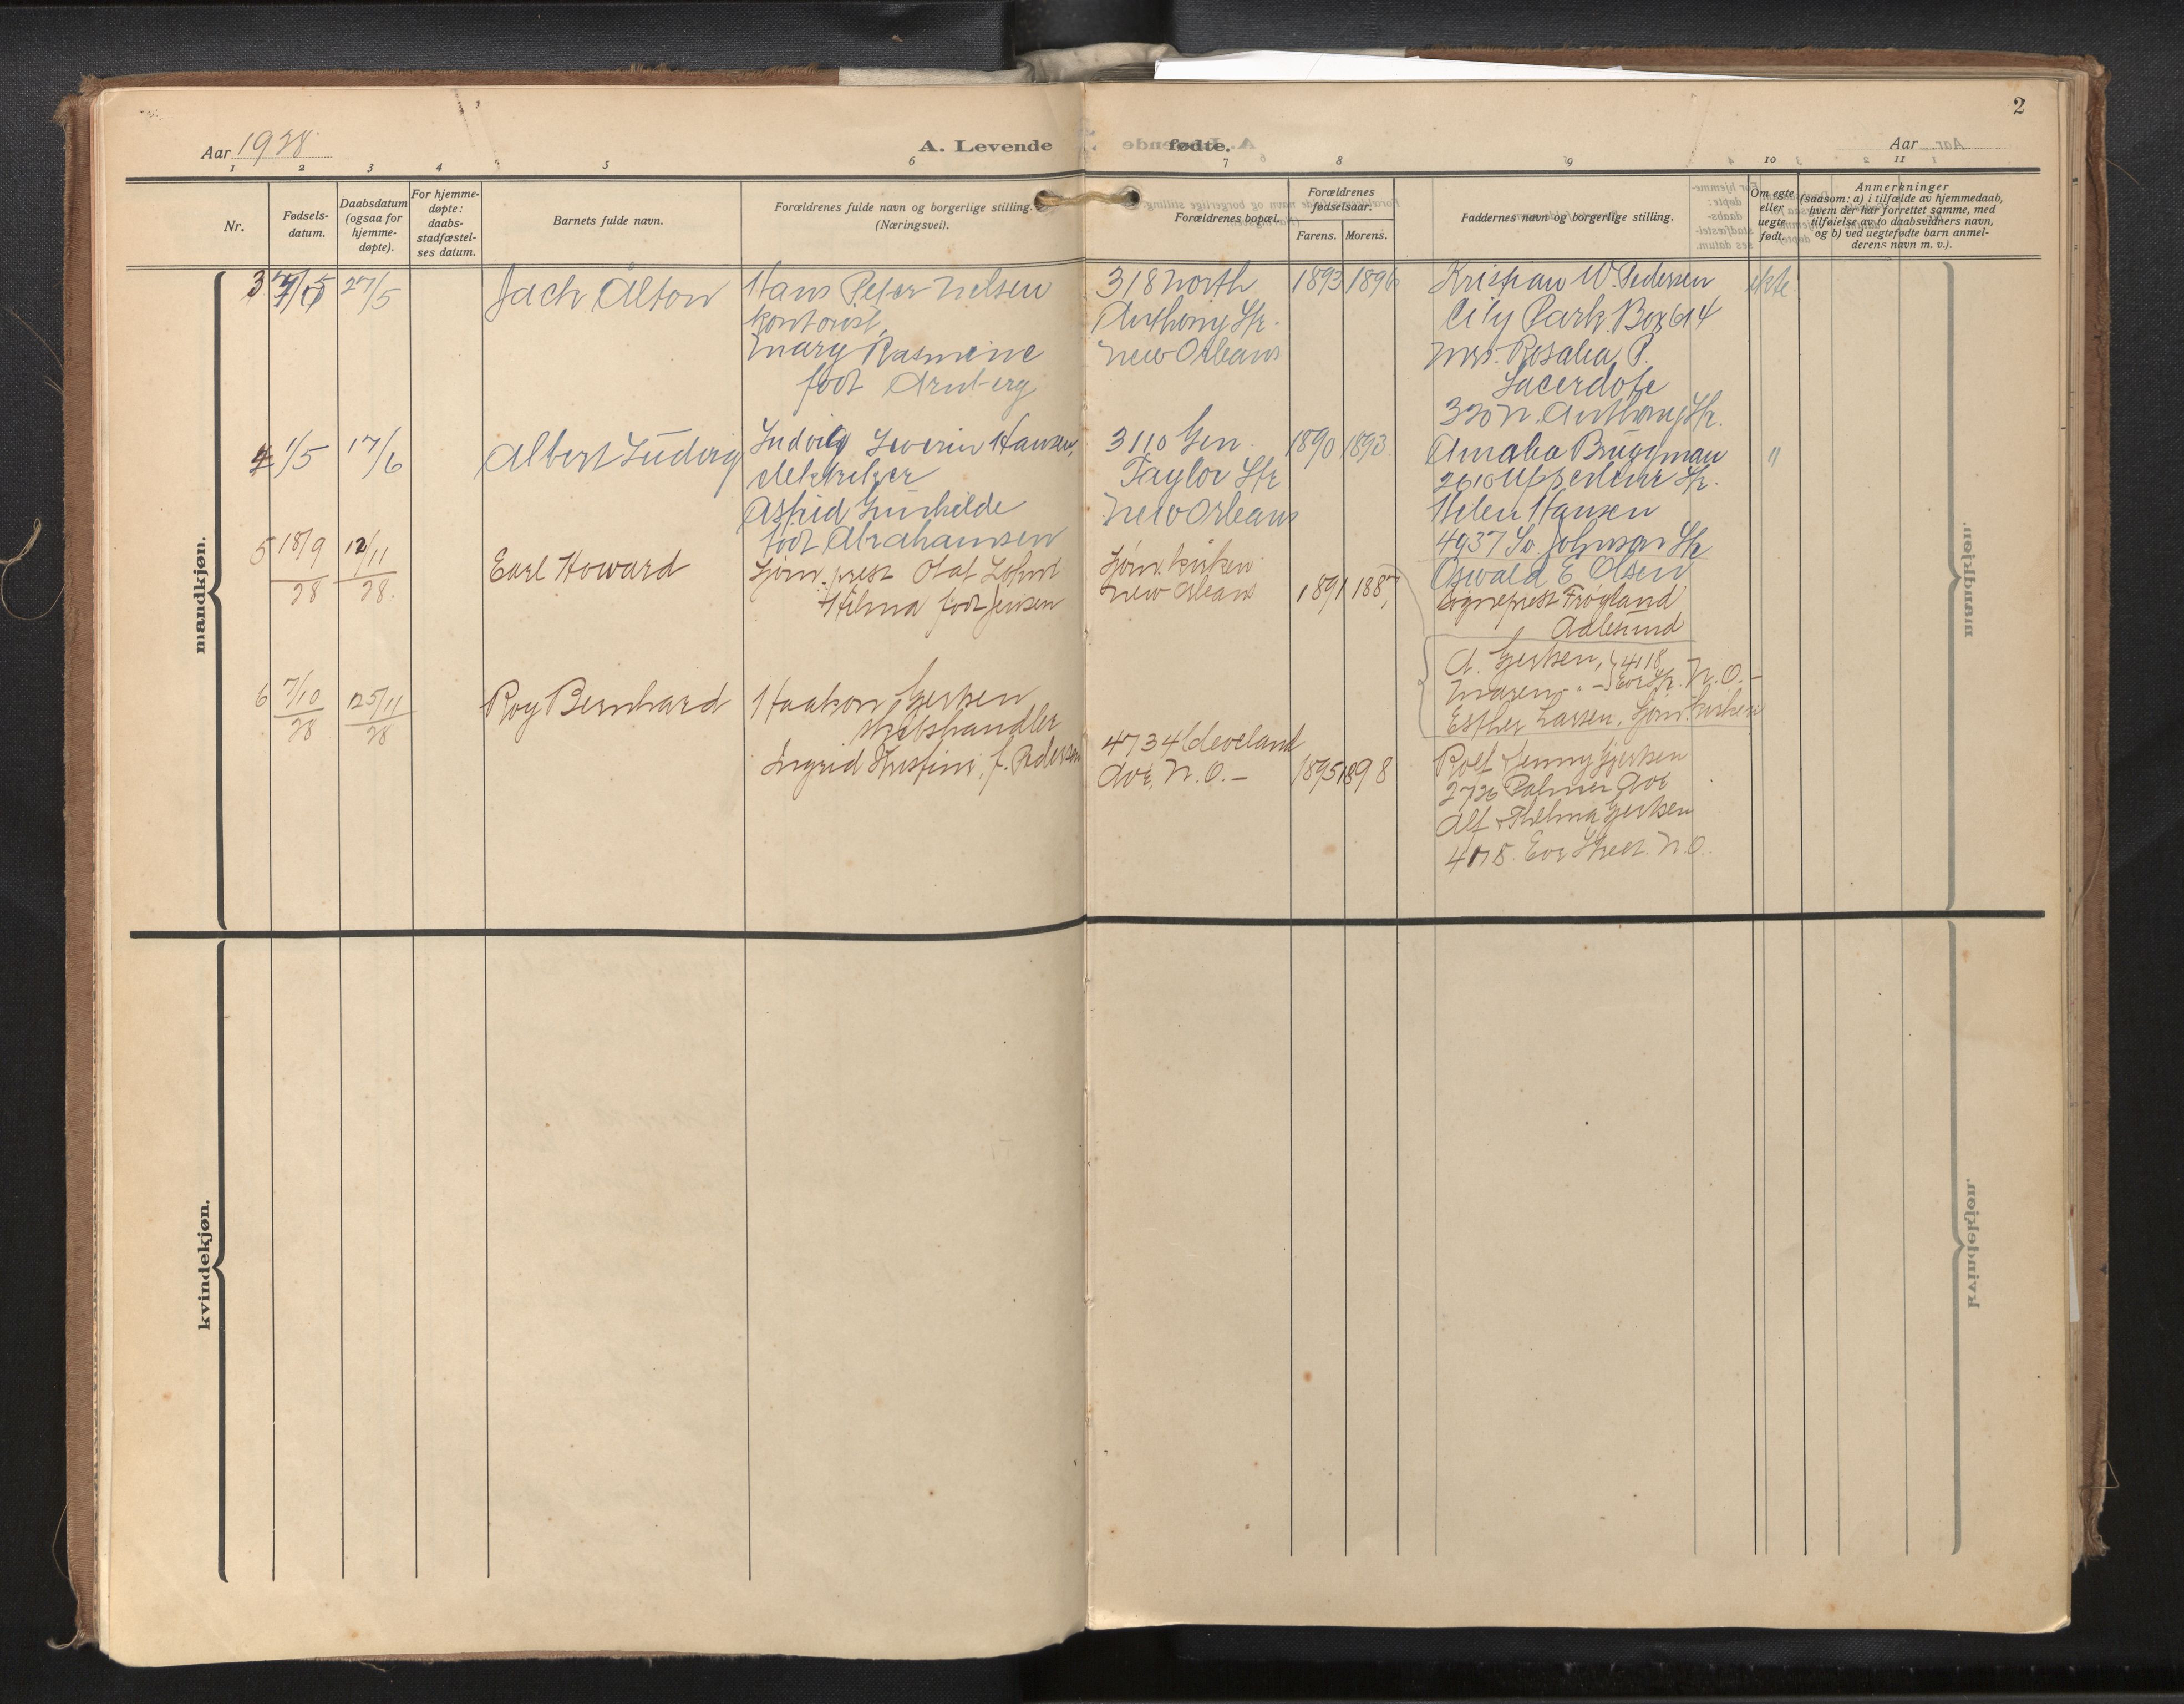 2
Aar 1928
A. Levende fødte.
Aar
1 2 3 4 5 6 7 8 9 10 11
Nr.
Fødsels-
datum.
Daabsdatum
(ogsaa for
hjemme-
døpte).
For hjemme-
døpte:
daabs-
stadfæstel-
ses datum.
Barnets fulde navn.
Forældrenes fulde navn og borgerlige stilling.
(Næringsvei).
Forældrenes bopæl.
Forældrenes
fødselsaar.
Farens. Morens.
Faddernes navn og borgerlige stilling.
Om egte
eller
uegte
født.
Anmerkninger
(saasom: a) i tilfælde av hjemmedaab,
hvem der har forrettet samme, med
tilføielse av to daabsvidners navn,
og b) ved uegtefødte barn anmel-
derens navn m. v.).
mandkjøn.
3
27/5
Jack Alton
Hans Peter Nelsen
kontorist,
Mary Rasmine
født Arnberg
318 North
Anthony Str.
New Orleans
1893 1896
Kristian W. Pedersen
City Park Box 614
Mrs. Rosalia P.
Sacerdote
320 N. Anthony Str.
ekte
4
1/5
17/6
Albert Ludvig
Ludvig Severin Hansen,
elektriker
Astrid Gunhilde
født Abrahamsen
3110 Gen.
Taylor Str
New Orleans
1890 1893
Amalia Bruggman
2610 Upperline Str.
Helen Hansen
4937 So. Johnson Str
Oswald E. Olsen
"
5
18/9
28
12/11
28.
Earl Howard
Sjøm. prest Olaf
Hilma født Jensen
Sjøm. kirken
New Orleans
1891 1887
Sogneprest Frøyland
Aalesund
A. Gjertsen, 4118
Maren " - Eve Str. N. O. -
Esther Larsen, Sjøm. kirken
6
7/10
28
25/11
28
Roy Bernhard
Haakon Gjertsen
skibshandler
Ingrid Kristine, f. Pedersen
4734 Cleveland
Ave, N. O. -
1895 1898
Rolf Jenny Gjertsen
2726 Palmer Ave
Alf + Thelma Gjertsen
4118 Eve Street. N. O.
kvindekjøn.